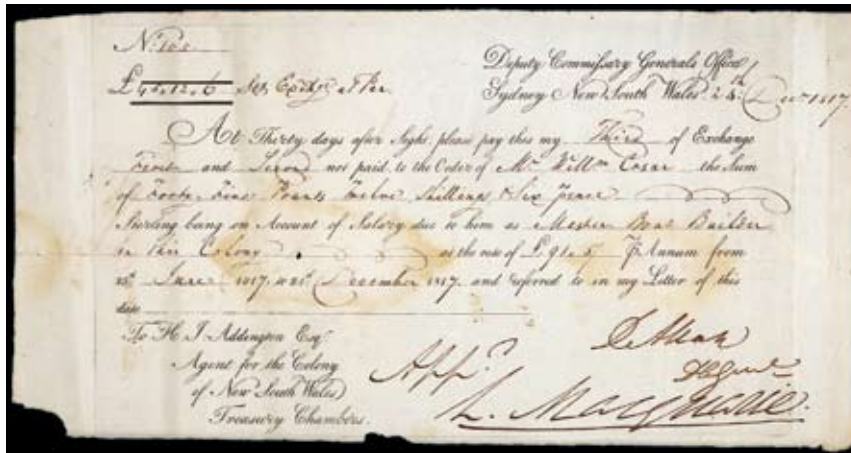 No. 100
£45.12.6 Stg Exchge at Par
Deputy Commissary Generals Office
Sydney New South Wales 24th Decr 1817
At Thirty days after Sight, please pay this my Third of Exchange
First and Second not paid to the Order of Mr Willm Cosar the Sum
of Forty Five Pounds Twelve Shillings & Six Pence
Sterling being on Account of Salary due to him as Master Boat Builder
in this Colony at the rate of £91.5 P Annum from
25th June 1817 to 25th December 1817 and referred to in my Letter of this
date
To H. J. Addington Esqr
Agent for the Colony
of New South Wales
Treasury Chambers.
D. Allan
Appd.
L. Macquarie